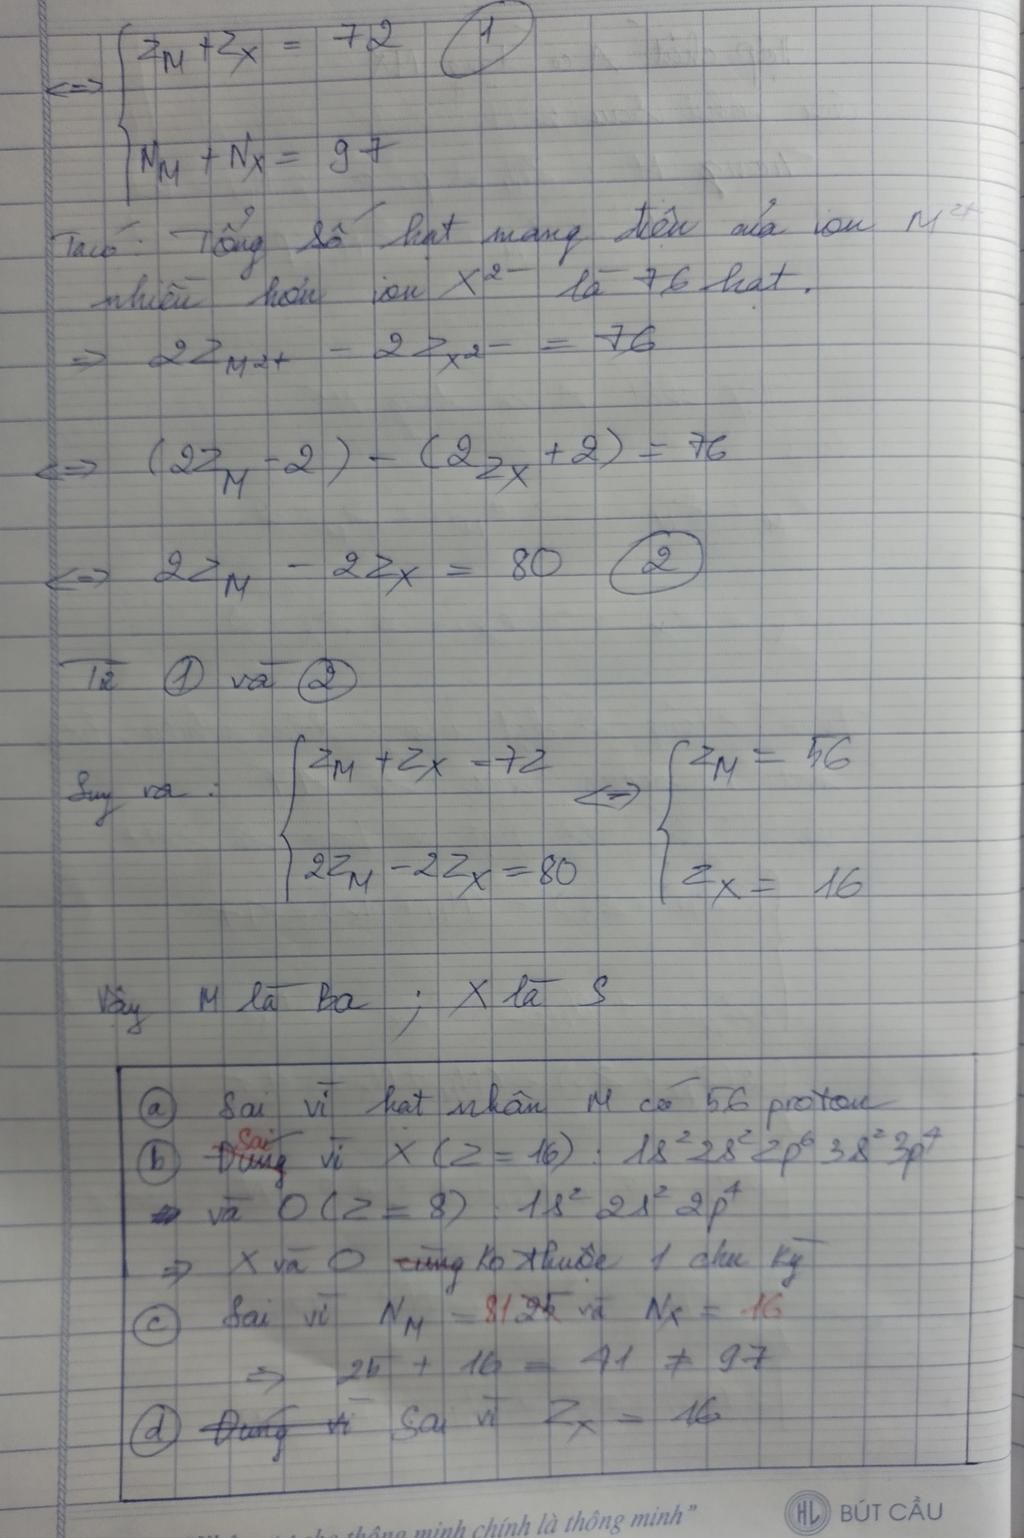 ⇔ { Z_M + Z_X = 72 (1)
N_M + N_X = 97
Ta có: Tổng số hạt mang điện của ion M²⁺
nhiều hơn ion X²⁻ là 76 hạt.
⇒ 2Z_M²⁺ - 2Z_X²⁻ = 76
⇔ (2Z_M - 2) - (2Z_X + 2) = 76
⇔ 2Z_M - 2Z_X = 80 (2)
Từ (1) và (2)
Suy ra: { Z_M + Z_X = 72 ⇔ { Z_M = 56
2Z_M - 2Z_X = 80 Z_X = 16
Vậy M là Ba ; X là S
(a) Sai vì hạt nhân M có 56 proton
(b) Đúng Sai vì X (Z = 16) : 1s² 2s² 2p⁶ 3s² 3p⁴
⇒ và O (Z = 8) : 1s² 2s² 2p⁴
⇒ X và O cùng ko thuộc 1 chu kỳ
(c) Sai vì N_M = 81 25 và N_X = 16
⇒ 25 + 16 = 41 ≠ 97
(d) Đúng vì Sai vì Z_X = 16
thông minh chính là thông minh" HL BÚT CẦU